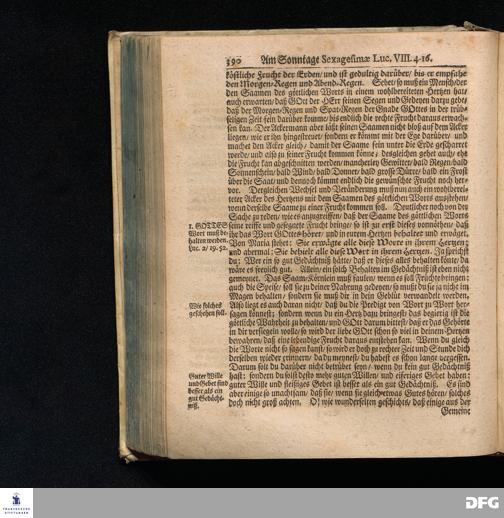 390 Am Sonntage Sexagesimæ Luc. VIII. 4-16.
köstliche Frucht der Erden/ und ist gedultig darüber/ bis er empfahe
den Morgen-Regen und Abend-Regen. Sehet/ so muß ein Mensch/ der
den Saamen des göttlichen Worts in einem wohlbereiteten Hertzen hat/
auch erwarten/ daß GOtt der HErr seinen Segen und Gedeyen darzu gebe/
daß der Morgen-Regen und Spat-Regen der Gnade GOttes in der trüb-
seligen Zeit sein darüber komme/ bis endlich die rechte Frucht daraus erwach-
sen kan. Der Ackermann aber läßt seinen Saamen nicht bloß auf dem Acker
liegen/ wie er ihn hingestreuet/ sondern er kömmt mit der Ege darüber/ und
machet den Acker gleich/ damit der Saame fein unter die Erde gescharret
werde/ und also zu seiner Frucht kommen könne/ desgleichen gehet auch/ ehe
die Frucht kan abgeschnitten werden/ mancherley Gewitter/ bald Regen/ bald
Sonnenschein/ bald Wind/ bald Donner/ bald grosse Dürre/ bald ein Frost
über die Saat/ und dennoch kömmt endlich die gewünschte Frucht her-
vor. Dergleichen Wechsel und Veränderung muß nun auch ein wohlberei-
teter Acker des Hertzens mit dem Saamen des göttlichen Worts ausstehen/
wenn derselbe Saame zu einer Frucht kommen soll. Deutlicher noch von der
Sache zu reden/ wie es anzugreiffen/ daß der Saame des göttlichen Worts
seine reiffe und gesegnete Frucht bringe/ so ist zu erst dieses vonnöthen/ daß
ihr das Wort Gottes höret/ und in eurem Hertzen behaltet und erwäget.
Von Maria stehet: Sie erwägte alle diese Worte in ihrem Hertzen;
und abermal: Sie behielt alle diese Wort in ihrem Hertzen. Ja sprichst
du: Wer ein so gut Gedächtniß hätte/ daß er dieses alles behalten könte/ da
wäre es freylich gut. Allein/ ein solch Behalten im Gedächtniß ist eben nicht
gemeynet. Das Saam-Körnlein muß faulen/ wenn es soll Früchte bringen;
auch die Speise/ soll sie zu deiner Nahrung gedeyen/ so mußt du sie ja nicht im
Magen behalten/ sondern sie muß dir in dein Geblüt verwandelt werden.
Also liegt es auch daran nicht/ daß du die Predigt von Wort zu Wort her-
sagen könnest; sondern wenn du ein Hertz dazu bringest/ das begierig ist die
göttliche Wahrheit zu behalten/ und GOtt darum bittest/ daß er das Gehörte
in dir versiegeln wolle/ so wird der liebe GOtt schon so viel in deinem Hertzen
bewahren/ daß eine lebendige Frucht daraus entstehen kan. Wenn du gleich
die Worte nicht so sagen kanst/ so wird er doch zu rechter Zeit und Stunde dich
derselben wieder erinnern/ da du meynest/ du habest es schon lange vergessen.
Darum solt du darüber nicht betrübet seyn/ wenn du kein gut Gedächtniß
hast; sondern du solst desto mehr guten Willen/ und eifriges Gebet haben:
guter Wille und fleißiges Gebet ist besser als ein gut Gedächtniß. Es sind
aber einige so unachtsam/ daß sie/ wenn sie gleich etwas Gutes hören/ solches
doch nicht groß achten. O! wie wunderselten geschichts/ daß einige aus der
Gemeine
1. GOTTES
Wort muß be-
halten werden.
Luc. 2/ 19. 51.
Wie solches
geschehen soll.
Guter Wille
und Gebet sind
besser als ein
gut Gedächt-
niß.
FRANCKESCHE
STIFTUNGEN
DFG